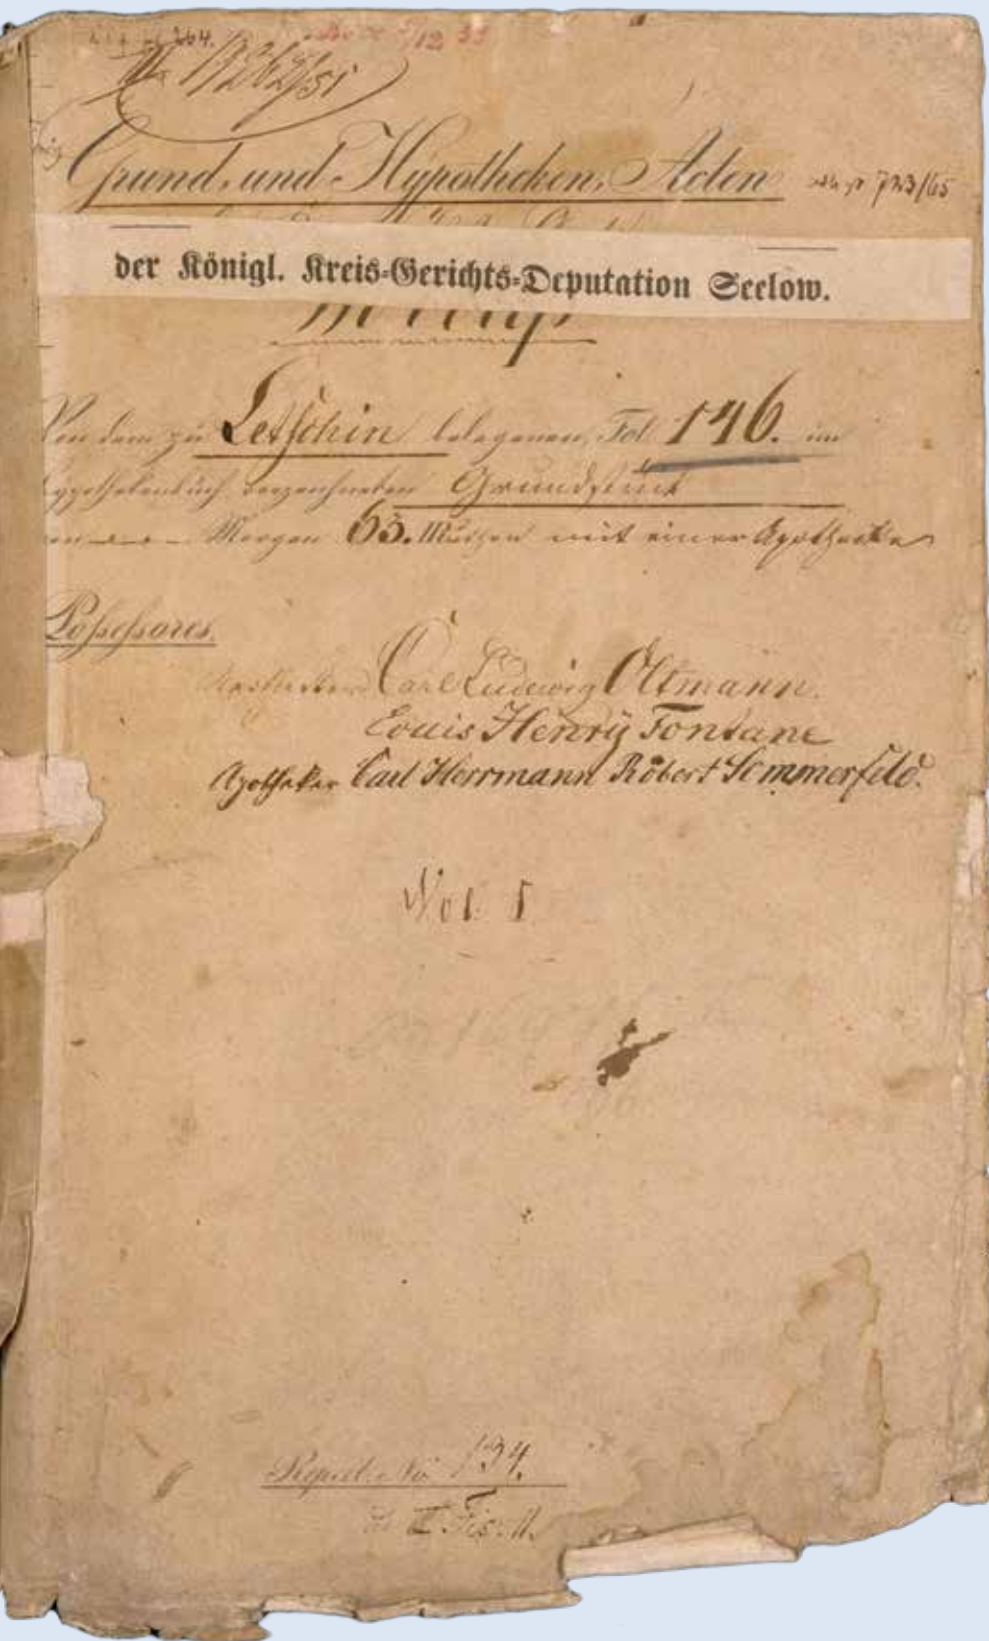 264.
12 33
Grund- und Hypotheken-Acten
723/65
der Königl. Kreis-Gerichts-Deputation Seelow.
Von dem zu Letschin belegenen, Fol 146. im
Hypothekenbuch verzeichneten Grundstück
Morgen 63. Ruthen mit einer Apotheke
Possessores.
Apotheker Carl Ludewig Oltmann.
Louis Henry Fontane
Apotheker Carl Herrmann Robert Sommerfeld.
Vol. I
Repert. No 134.